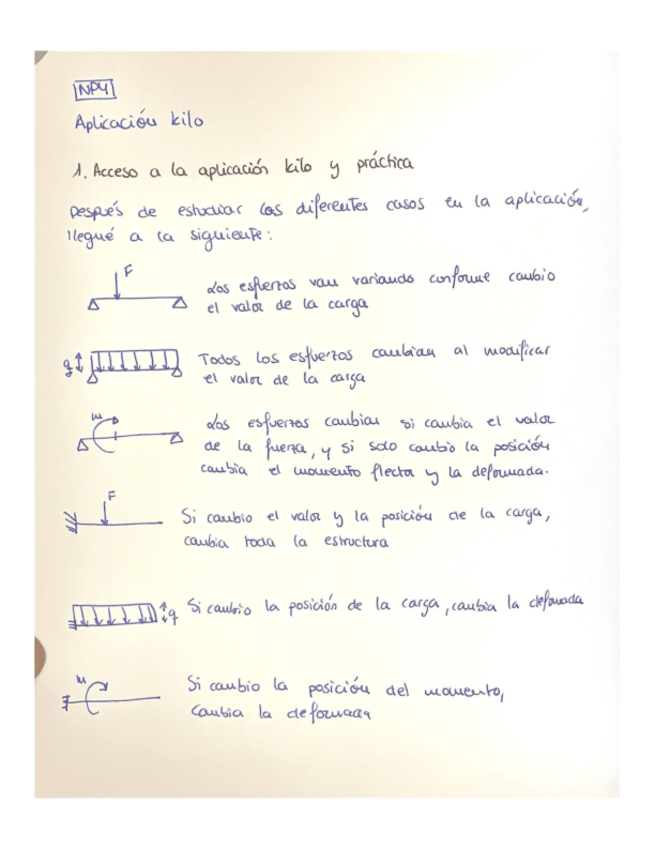 NP4
Aplicación kilo
1. Acceso a la aplicación kilo y práctica
Después de estudiar los diferentes casos en la aplicación,
llegué a la siguiente:
F
Los esfuerzos van variando conforme cambio
el valor de la carga
q
Todos los esfuerzos cambian al modificar
el valor de la carga
M
Los esfuerzos cambian si cambia el valor
de la fuerza, y si solo cambio la posición
cambia el momento flector y la deformada.
F
Si cambio el valor y la posición de la carga,
cambia toda la estructura
q
Si cambio la posición de la carga, cambia la deformada
M
Si cambio la posición del momento,
cambia la deformada